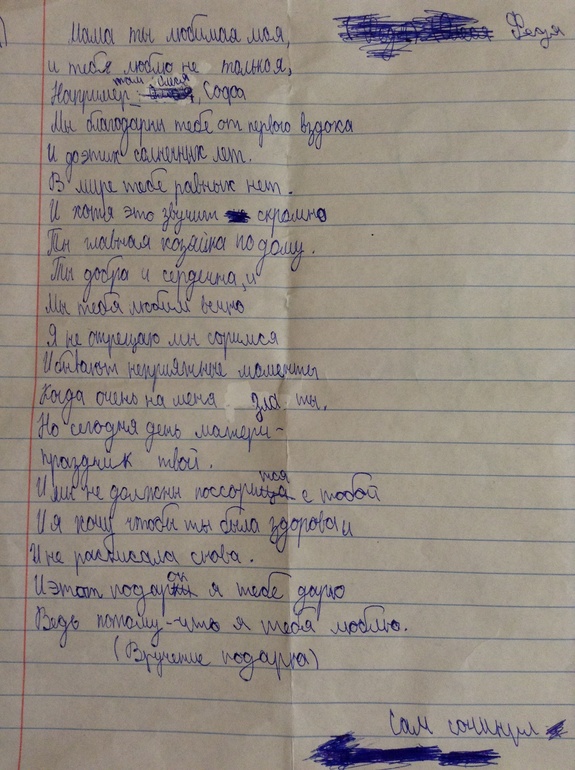 Федя
Мама ты любимая моя,
и тебя люблю не только я,
Например: там Олеся, Софа
Мы благодарны тебе от первого вздоха
И доэтих солнечных лет.
В мире тебе равных нет.
И хотя это звучит скромно
Ты главная хозяйка по дому.
Ты добра и сердечна, и
Мы тебя любим вечно
Я не отрецаю мы соримся
И бывают неприятные маменты
Когда очень на меня зла ты.
Но сегодня день матери-
праздник твой.
И мы не должны поссорится с тобой
И я хочу чтобы ты была здорова и
И не расписала снова.
И этот подарок я тебе дарю
Ведь потому-что я тебя люблю.
(Вручение подарка)
Сам сочинил